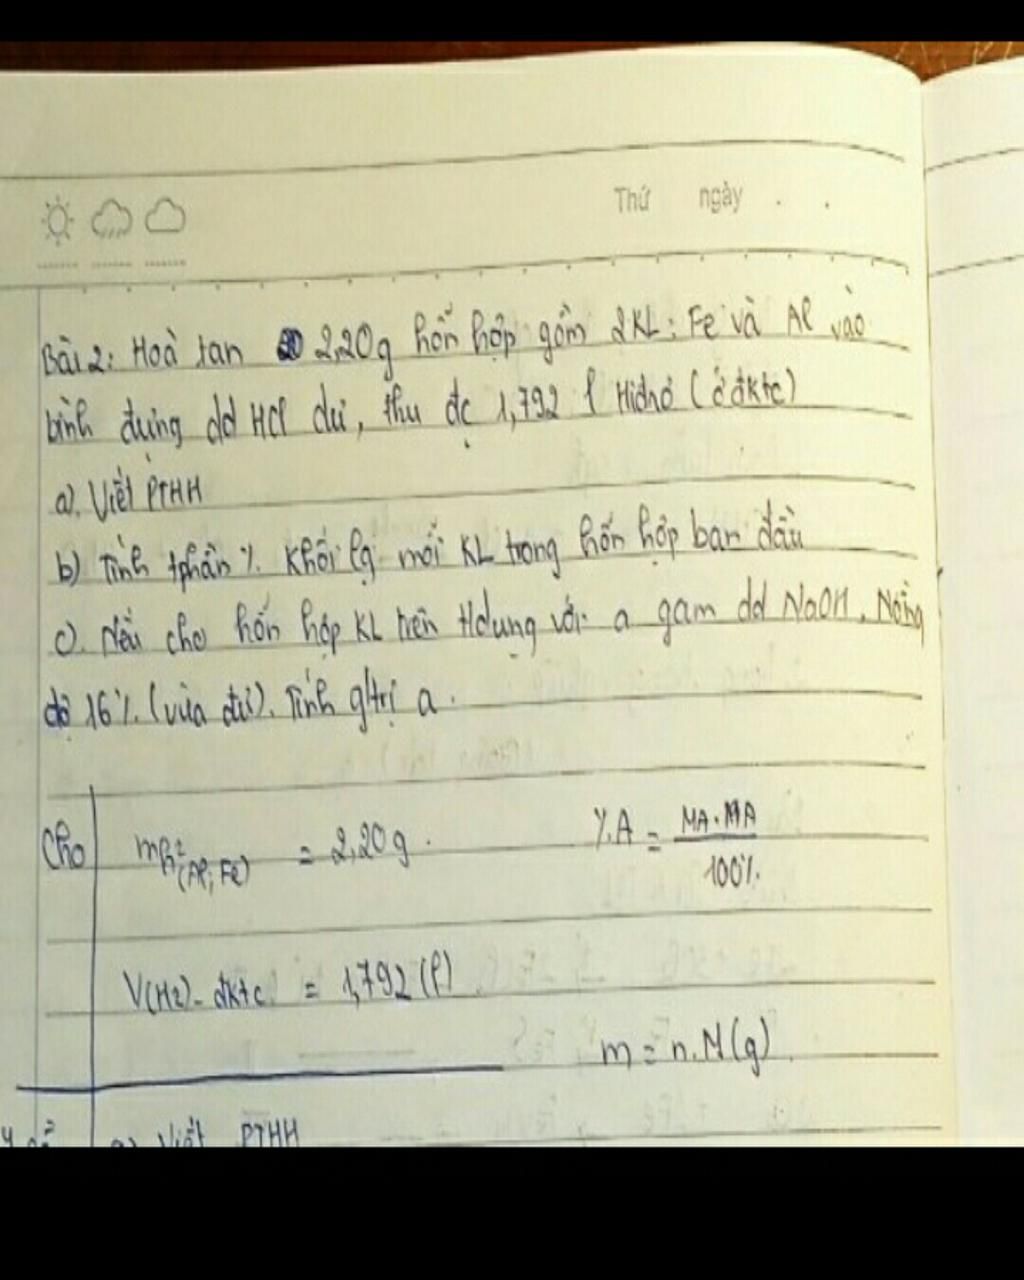 Thứ ngày . .
Bài 2: Hoà tan 2,20g hỗn hợp gồm 2KL: Fe và Al vào
bình đựng dd HCl dư, thu đc 1,792 l Hiđrô (ở đktc)
a). Viết PTHH
b) Tính tphần % Khối lg mỗi KL trong hỗn hợp ban đầu
c). Nếu cho hỗn hợp KL trên tdụng với a gam dd NaOH. Nồng
độ 16%. (vừa đủ). Tính g/trị a.
Cho mh²(Al, Fe) = 2,20g. %A = MA.MA / 100%.
V(H2)-đktc = 1,792 (l)
m = n.M (g)
a) Viết PTHH